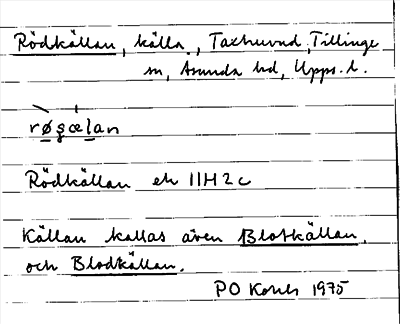 Rödkällan, källa, Taxhuvud, Tillinge
sn, Åsunda hd, Upps. l.
røʂœlan
Rödkällan ek 11H2c
Källan kallas även Blotkällan,
och Blodkällan.
PO 1975